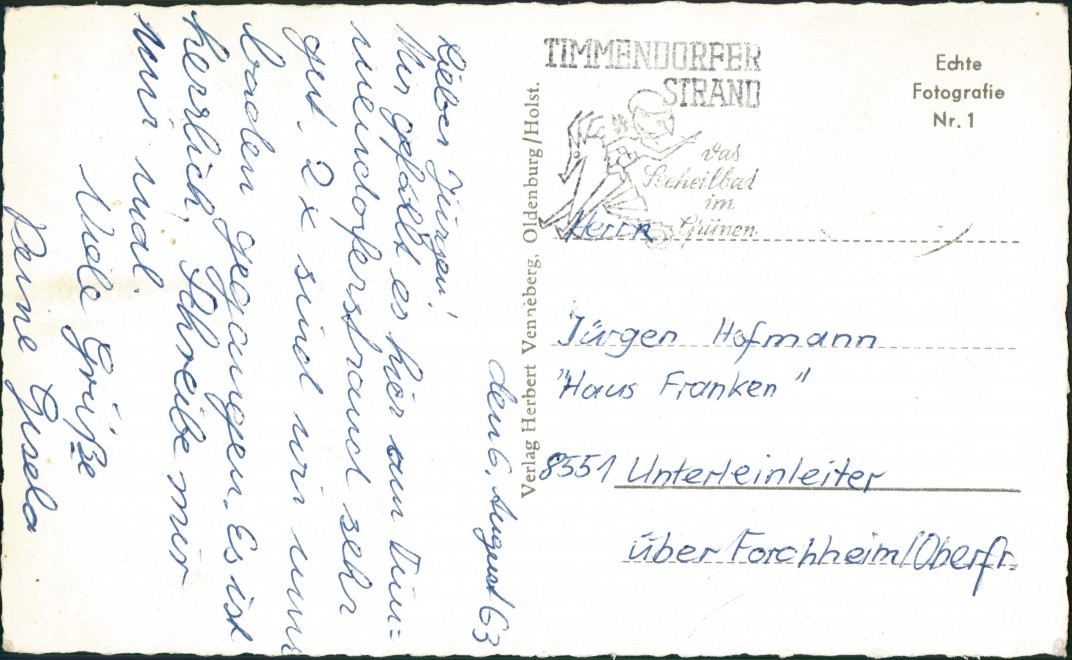 den 6. August 63
Lieber Jürgen!
Mir gefällt es hier am Tim=
mendorferstrand sehr
gut. 2x sind wir nun
baden gegangen. Es ist
herrlich, Schreibe mir
mal
Viele Grüße
Deine Gisela
Verlag Herbert Venneberg, Oldenburg/Holst.
TIMMENDORFER
STRAND
das
Seeheilbad
im
Grünen
Echte
Fotografie
Nr. 1
Herrn
Jürgen Hofmann
"Haus Franken"
8551 Unterleinleiter
über Forchheim/Oberfr.